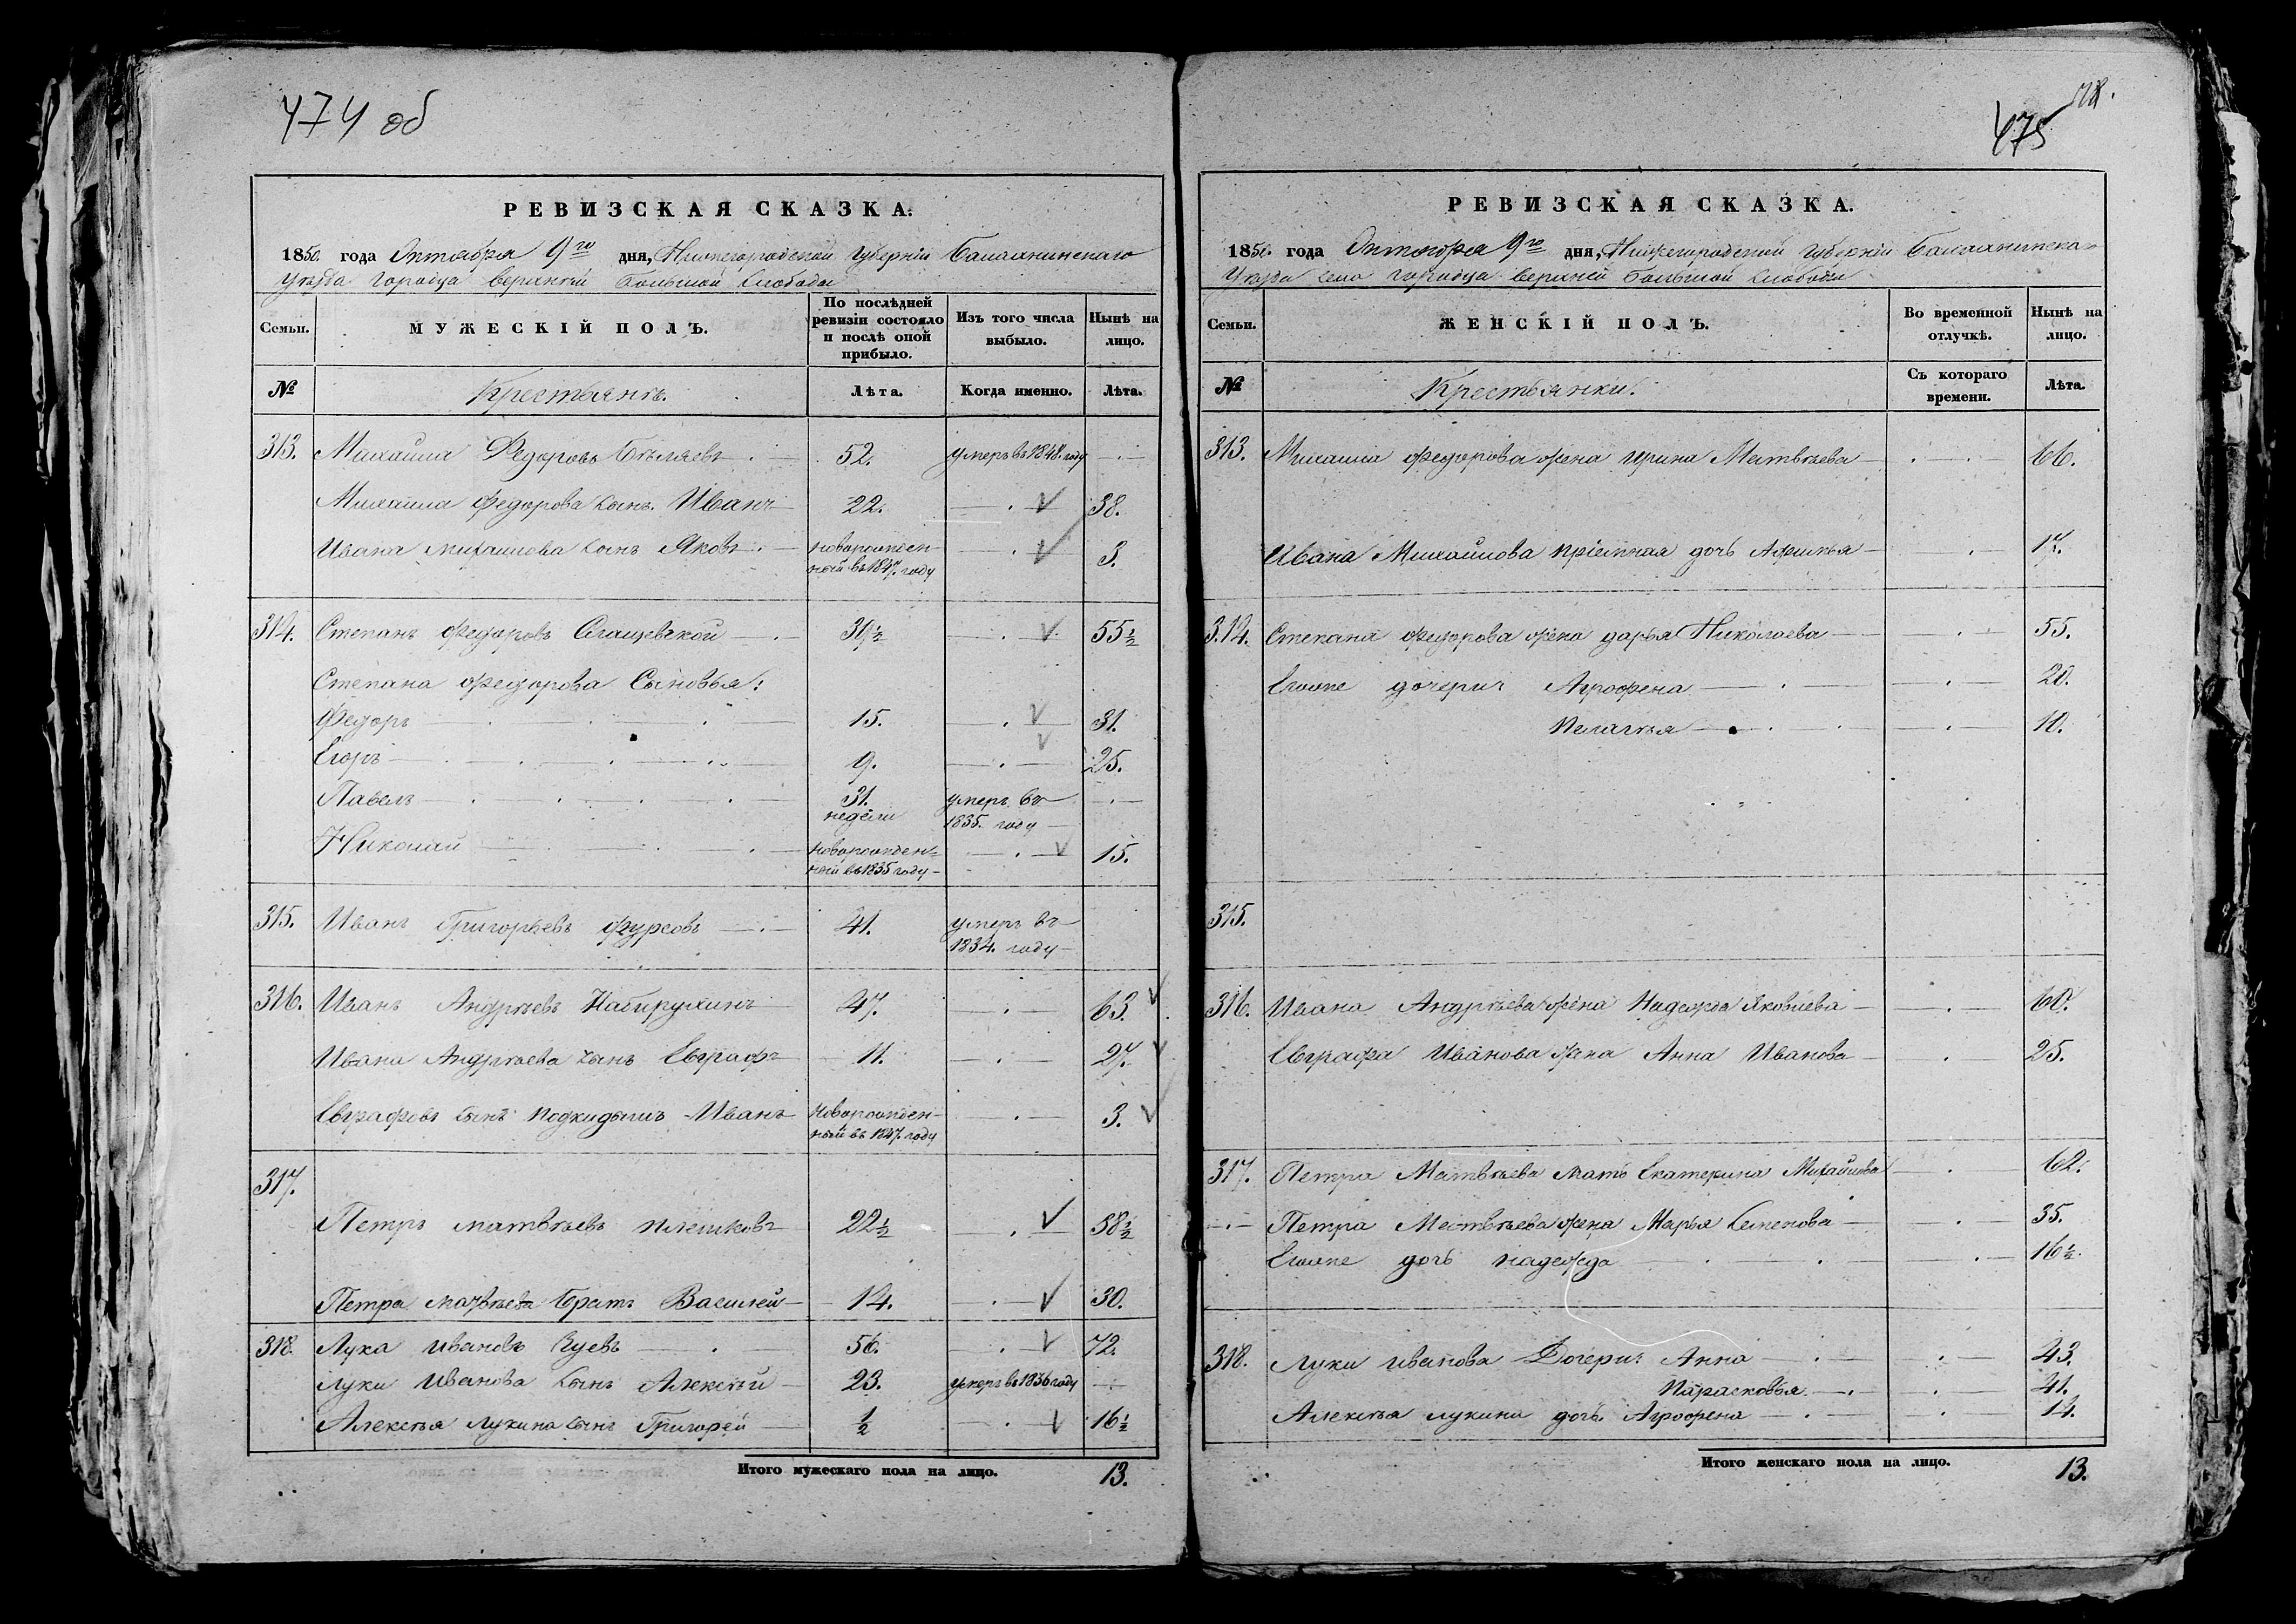 474 об
РЕВИЗСКАЯ СКАЗКА.
1850. года Октября 9го дня, Нижегородской Губернии Балахнинскаго
Уѣзда Городца верхнѣй Большой Слободы
Семьи. МУЖЕСКІЙ ПОЛЪ. По послѣдней ревизіи состояло и послѣ оной прибыло. Изъ того числа выбыло. Нынѣ на лицо.
№ Крестьянъ. Лѣта. Когда именно. Лѣта.
313. Михайла Федоровъ Бѣляевъ 52. умеръ въ 1848. году
Михайла Федорова сынъ Иванъ 22. 38.
Ивана Михайлова сынъ Яковъ новорожден- 3.
ный въ 1847. году
314. Степанъ Федоровъ 39½ 55½
Степана Федорова Сыновья:
Федоръ 15. 31.
Егоръ 9. 25.
Павелъ 31. умеръ въ
недели 1835. году
Николай новорожден- 15.
ный въ 1835 году
315. Иванъ Григорьевъ Фурсовъ 41. умеръ въ
1834. году
316. Иванъ Андрѣевъ 47. 63.
Ивана Андрѣева сынъ Евграфъ 11. 27.
Евграфовъ сынъ подкидышъ Иванъ новорожден- 3.
ный въ 1847. году
317.
Петръ Матвѣевъ Плешковъ 22½ 38½
Петра Матвѣева братъ Василей 14. 30.
318. Лука Ивановъ Зуевъ 56. 72.
Луки Иванова сынъ Алексѣй 23. умеръ въ 1836 году
Алексѣя Лукина сынъ Григорей ½ 16½
Итого мужескаго пола на лицо. 13.
475
РЕВИЗСКАЯ СКАЗКА.
1850. года Октября 9го дня, Нижегородской Губернии Балахнинска
Уѣзда село Городца верхней большой слободы
Семьи. ЖЕНСКІЙ ПОЛЪ. Во временной отлучкѣ. Нынѣ на лицо.
№ Крестьянки. Съ котораго времени. Лѣта.
313. Михайла Федорова жена Ирина Матвѣева 66.
Ивана Михайлова пріемная дочь Афимья 17.
314. Степана Федорова жена Дарья Николаева 55.
Егоже дочери Агрофена 20.
Пелагѣя 10.
315.
316. Ивана Андрѣева жена Надежда Яковлева 60.
Евграфа Иванова жена Анна Иванова 25.
317. Петра Матвѣева мать Екатерина Михайлова 62.
Петра Матвѣева жена Марья Семенова 35.
Егоже дочь надежда 16½.
318. Луки Иванова Дочери Анна 43.
Парасковья 41.
Алексѣя Лукина дочь Агрофена 14.
Итого женскаго пола на лицо. 13.